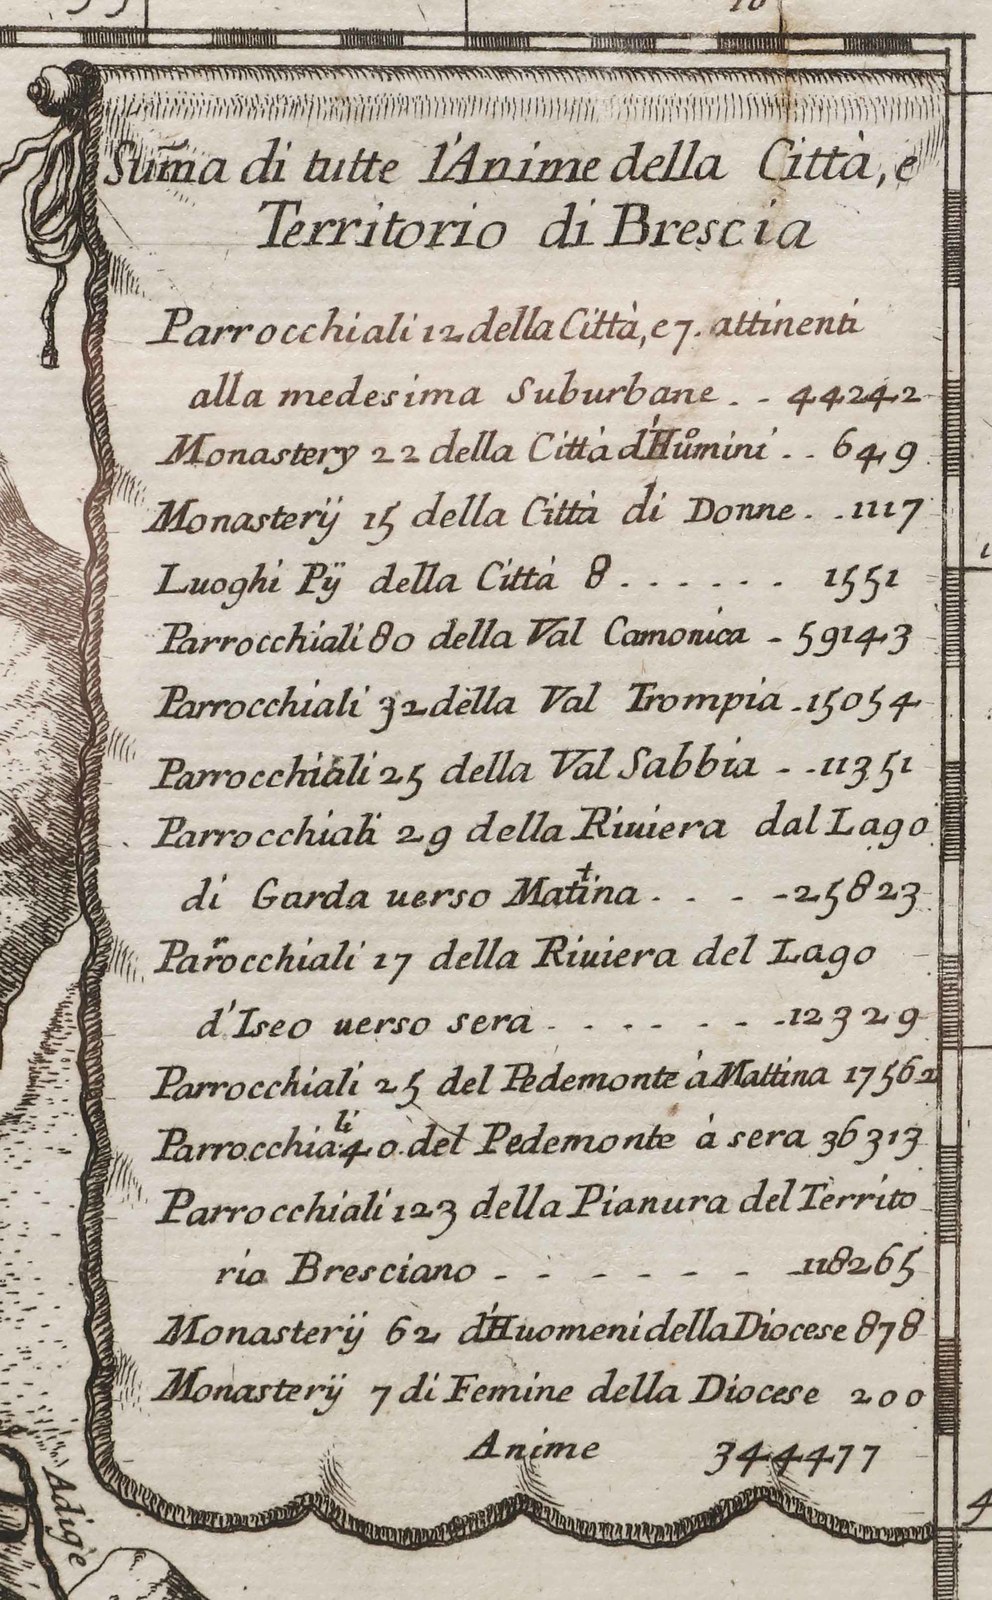 Sum̃a di tutte l'Anime della Città, e
Territorio di Brescia
Parrocchiali 12 della Città, e 7. attinenti
alla medesima Suburbane . . 44242
Monastery 22 della Città d'Huomini . . 649
Monasterij 15 della Città di Donne . . 1117
Luoghi Pij della Città 8 . . . . . . 1551
Parrocchiali 80 della Val Camonica - 59143
Parrocchiali 32 della Val Trompia . 15054
Parrocchiali 25 della Val Sabbia - - 11351
Parrocchiali 29 della Riuiera dal Lago
di Garda uerso Mattina . . - - 25823
Parrocchiali 17 della Riuiera del Lago
d'Iseo uerso sera . . . . . - - 12329
Parrocchiali 25 del Pedemonte à Mattina 17562
Parrocchiali 40 del Pedemonte à sera 36313
Parrocchiali 123 della Pianura del Territo
rio Bresciano - - - - - - - 118265
Monasterij 62 d'Huomeni della Diocese 878
Monasterij 7 di Femine della Diocese 200
Anime 344477
Adige